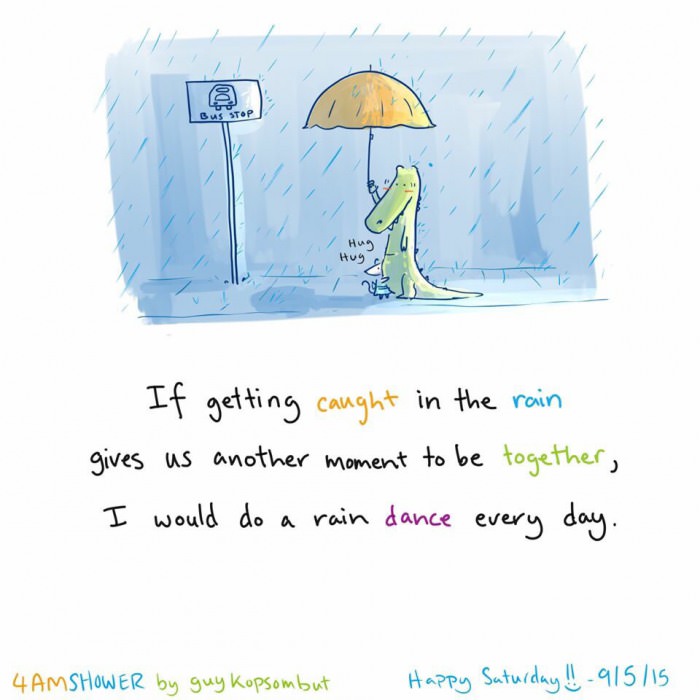 BUS STOP
Hug
Hug
If getting caught in the rain
gives us another moment to be together,
I would do a rain dance every day.
4AMSHOWER by guy Kopsombut
Happy Saturday!! - 9/5/15